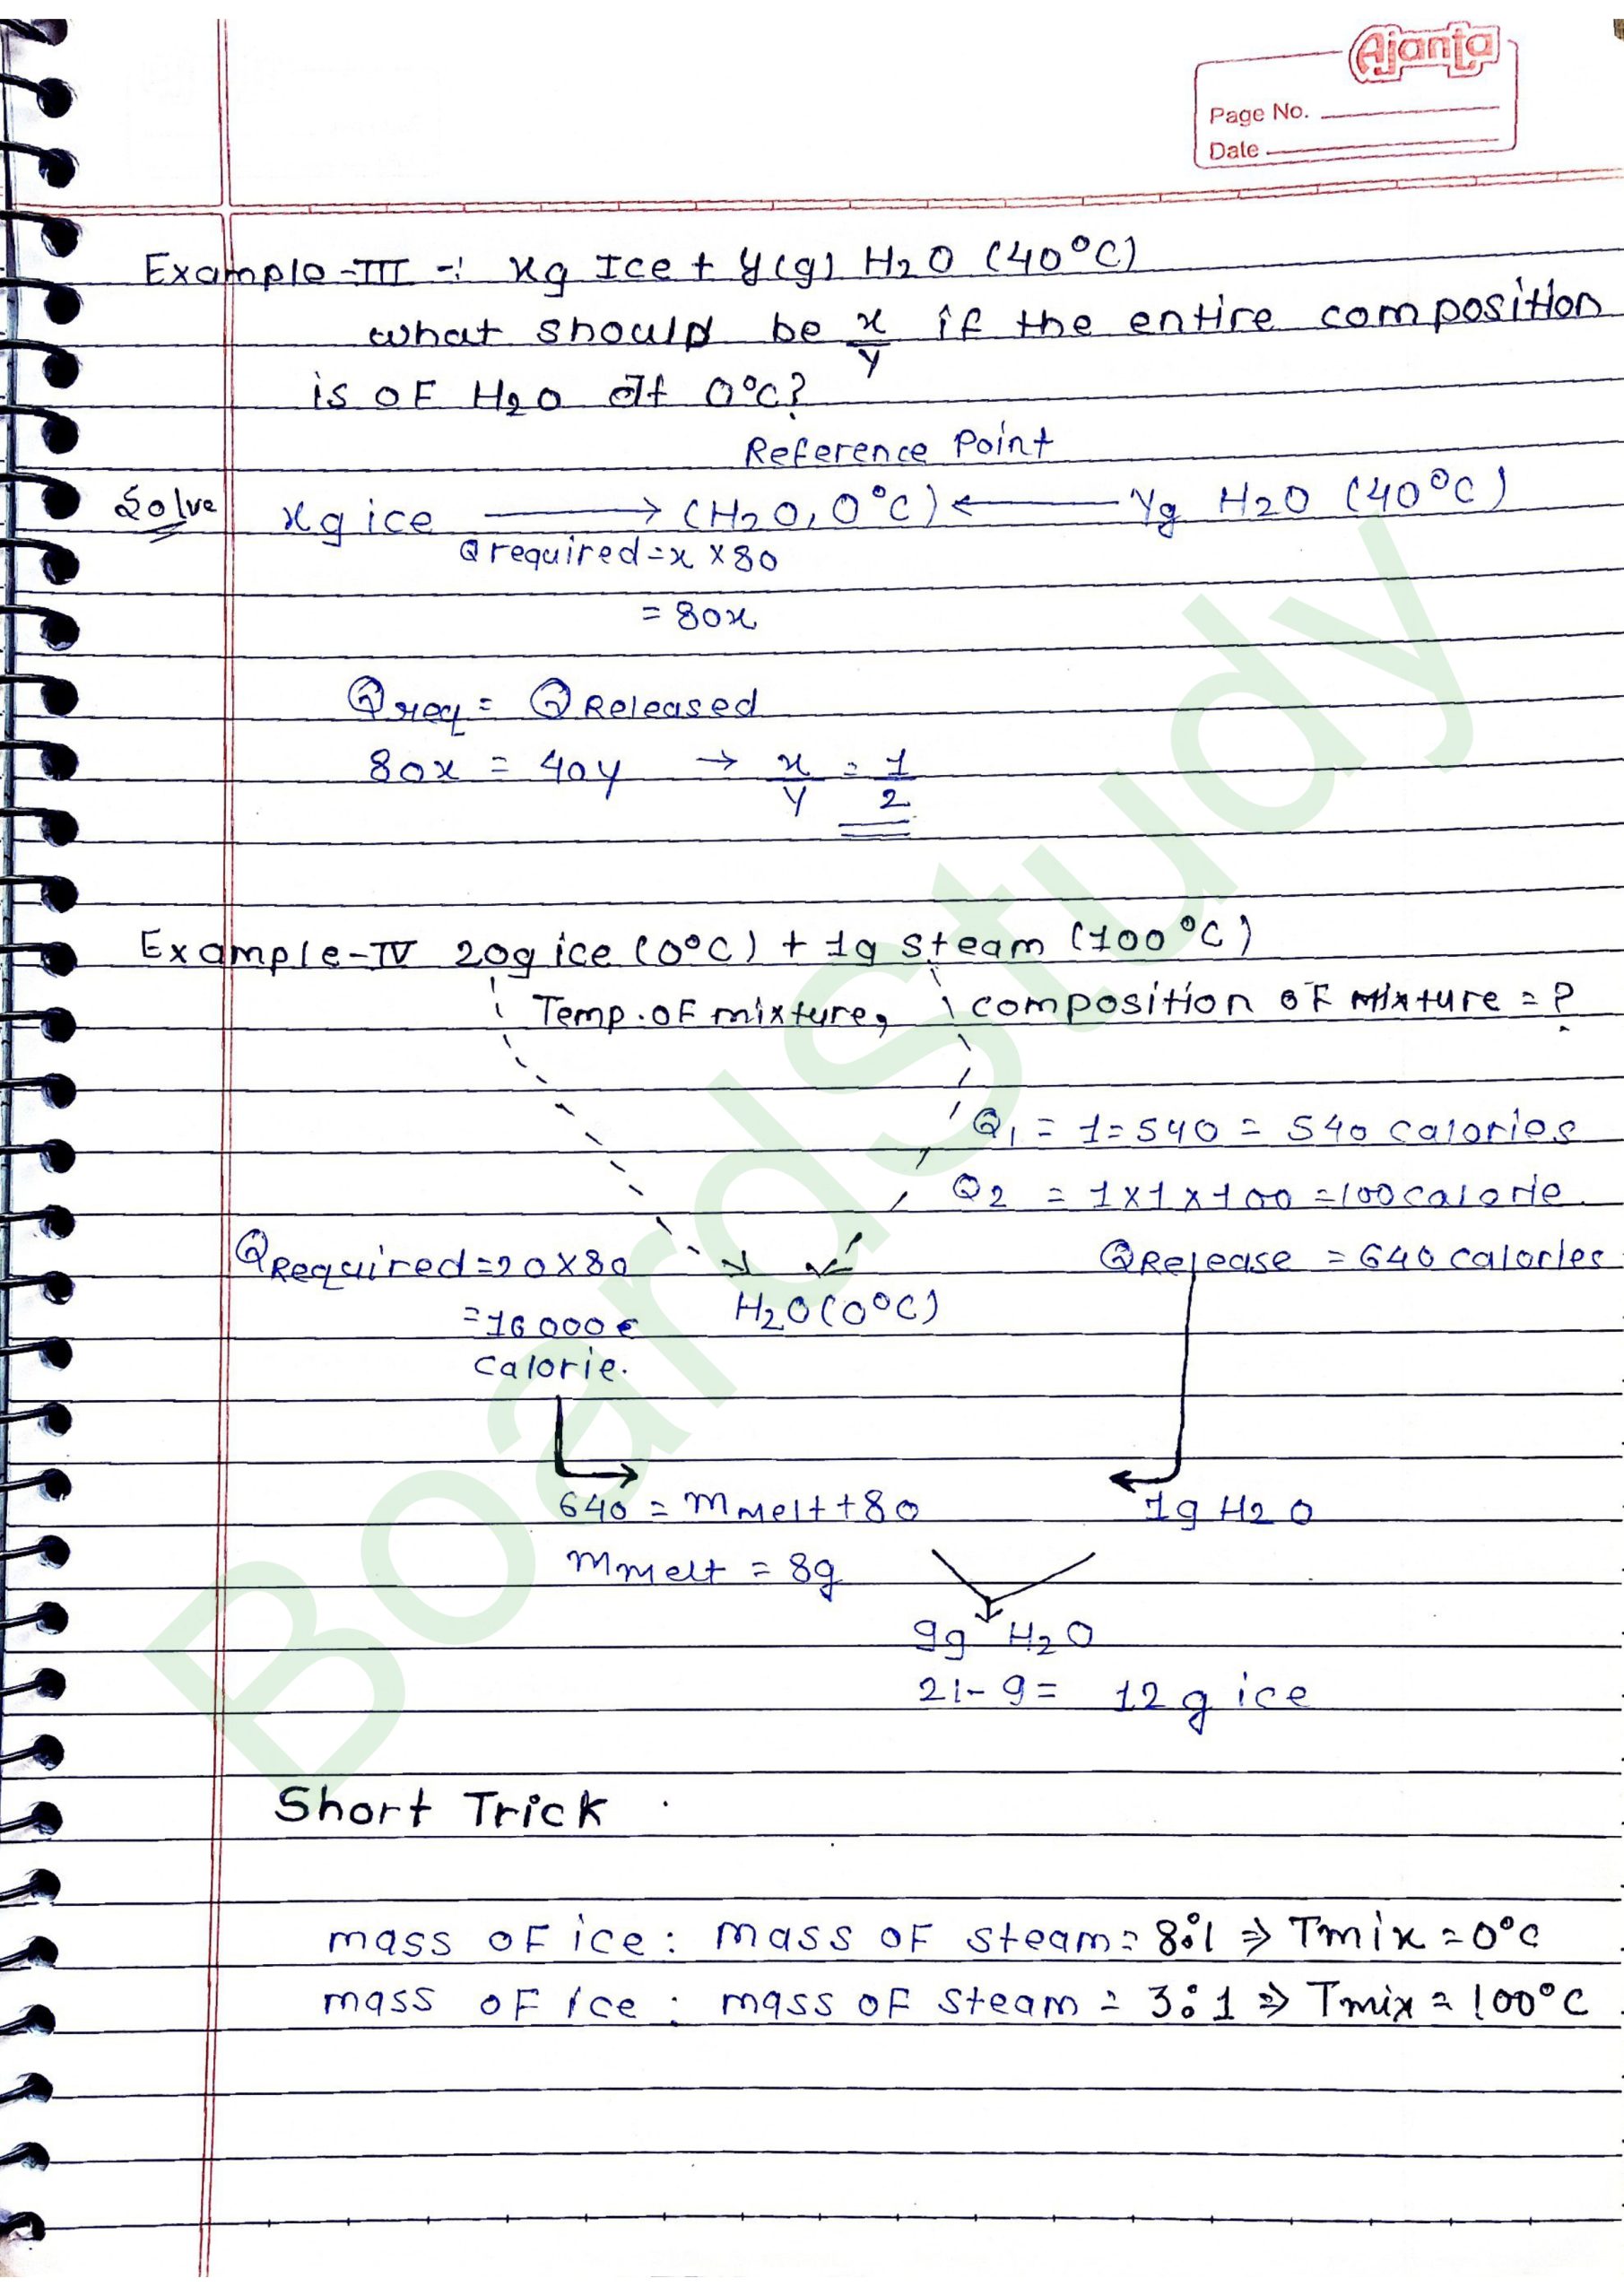 Ajanta
Page No.
Date
Example-III =: xg Ice + y(g) H2O (40°C)
what should be x/y if the entire composition
is OF H2O at 0°C?
Reference Point
Solve xg ice → (H2O, 0°C) ← Yg H2O (40°C)
Qrequired = x × 80
= 80x
Qreq = QReleased
80x = 40y → x/y = 1/2
Example-IV 20g ice (0°C) + 1g steam (100°C)
Temp. OF mixture, composition OF Mixture = ?
Q1 = 1=540 = 540 calories
Q2 = 1×1×100 = 100 calorie.
QRequired = 20×80 QRelease = 640 calories
= 16000 H2O(0°C)
calorie.
640 = mmelt + 80 1g H2O
mmelt = 8g
9g H2O
21-9 = 12g ice
Short Trick
mass OF ice : mass OF steam = 8:1 ⇒ Tmix = 0°C
mass OF Ice : mass OF steam = 3:1 ⇒ Tmix = 100°C
BoardStudy